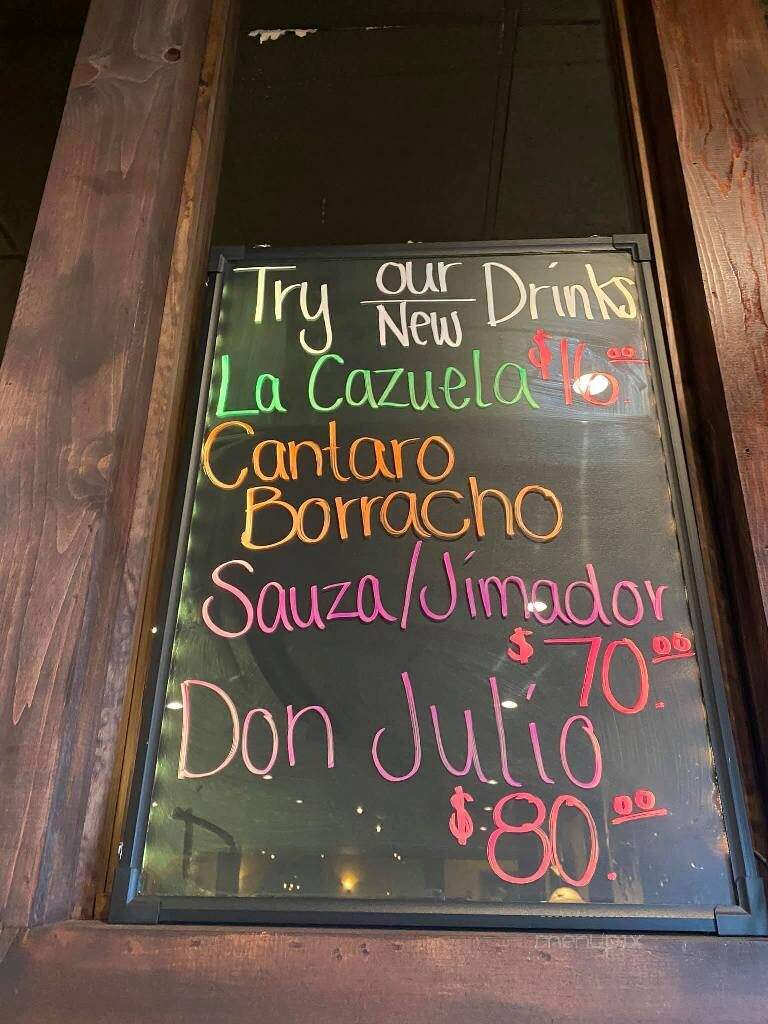 Try our New Drinks
La Cazuela $16.00
Cantaro
Borracho
Sauza/Jimador
$70.00
Don Julio
$80.00
menupix